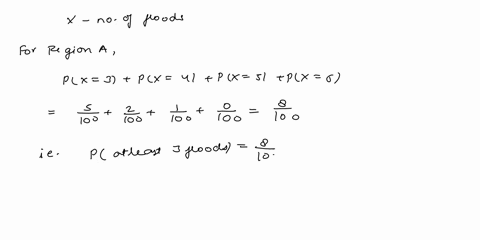 x - no. of floods
For Region A,
P(x = 3) + P(x = 4) + P(x = 5) + P(x = 6)
= 5/100 + 2/100 + 1/100 + 0/100 = 8/100
i.e. P( atleast 3 floods) = 8/10.